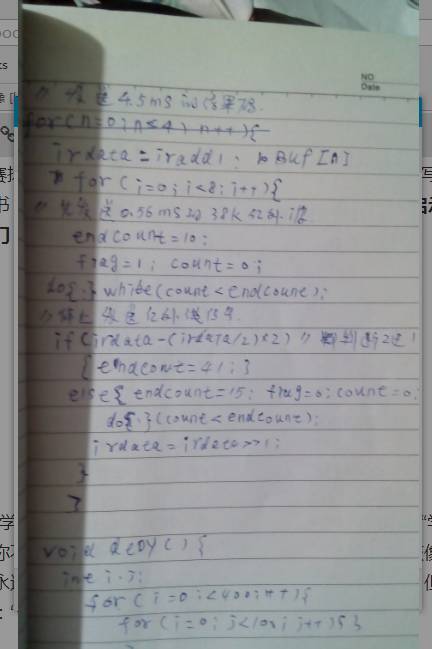 NO
Date
// 发送4.5ms的结果码.
for(n=0;n≤4;n++){
irdata=iradd1; bBuf[n]
for(i=0;i<8;i++){
// 先发送0.56ms的38k红外波
endcount=10;
frag=1; count=0;
do{.}while(count<endcount);
// 停止发送红外信号
if(irdata-(irdata/2)*2) //
{endcont=41;}
else{endcount=15; frag=0; count=0;
do{.}(count<endcount);
irdata=irdata>>1;
}
}
void delay(){
int i.j;
for(i=0;i<400;i++){
for(i=0;j<10x;j++){}